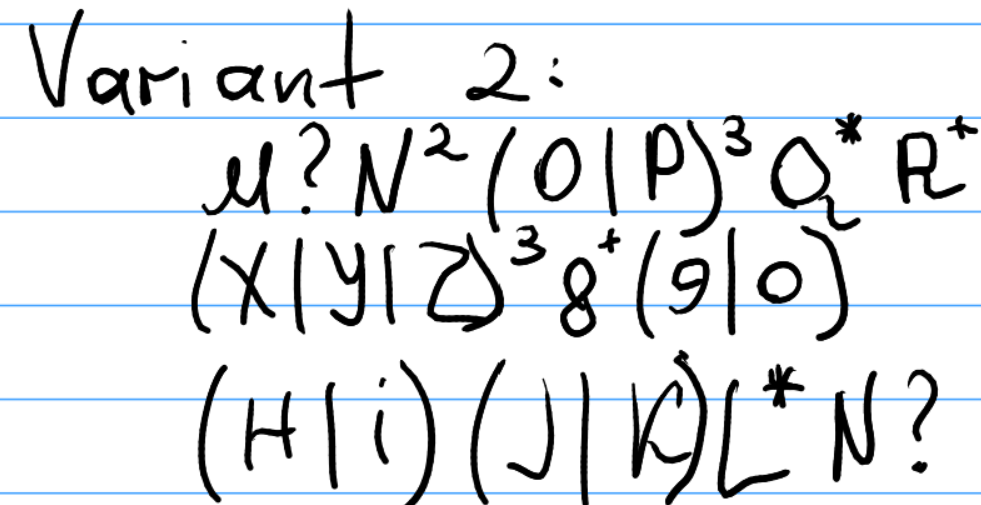 Variant 2:
M?N²(O|P)³Q*R⁺
(X|Y|Z)³8⁺(9|0)
(H|i)(J|K)L*N?